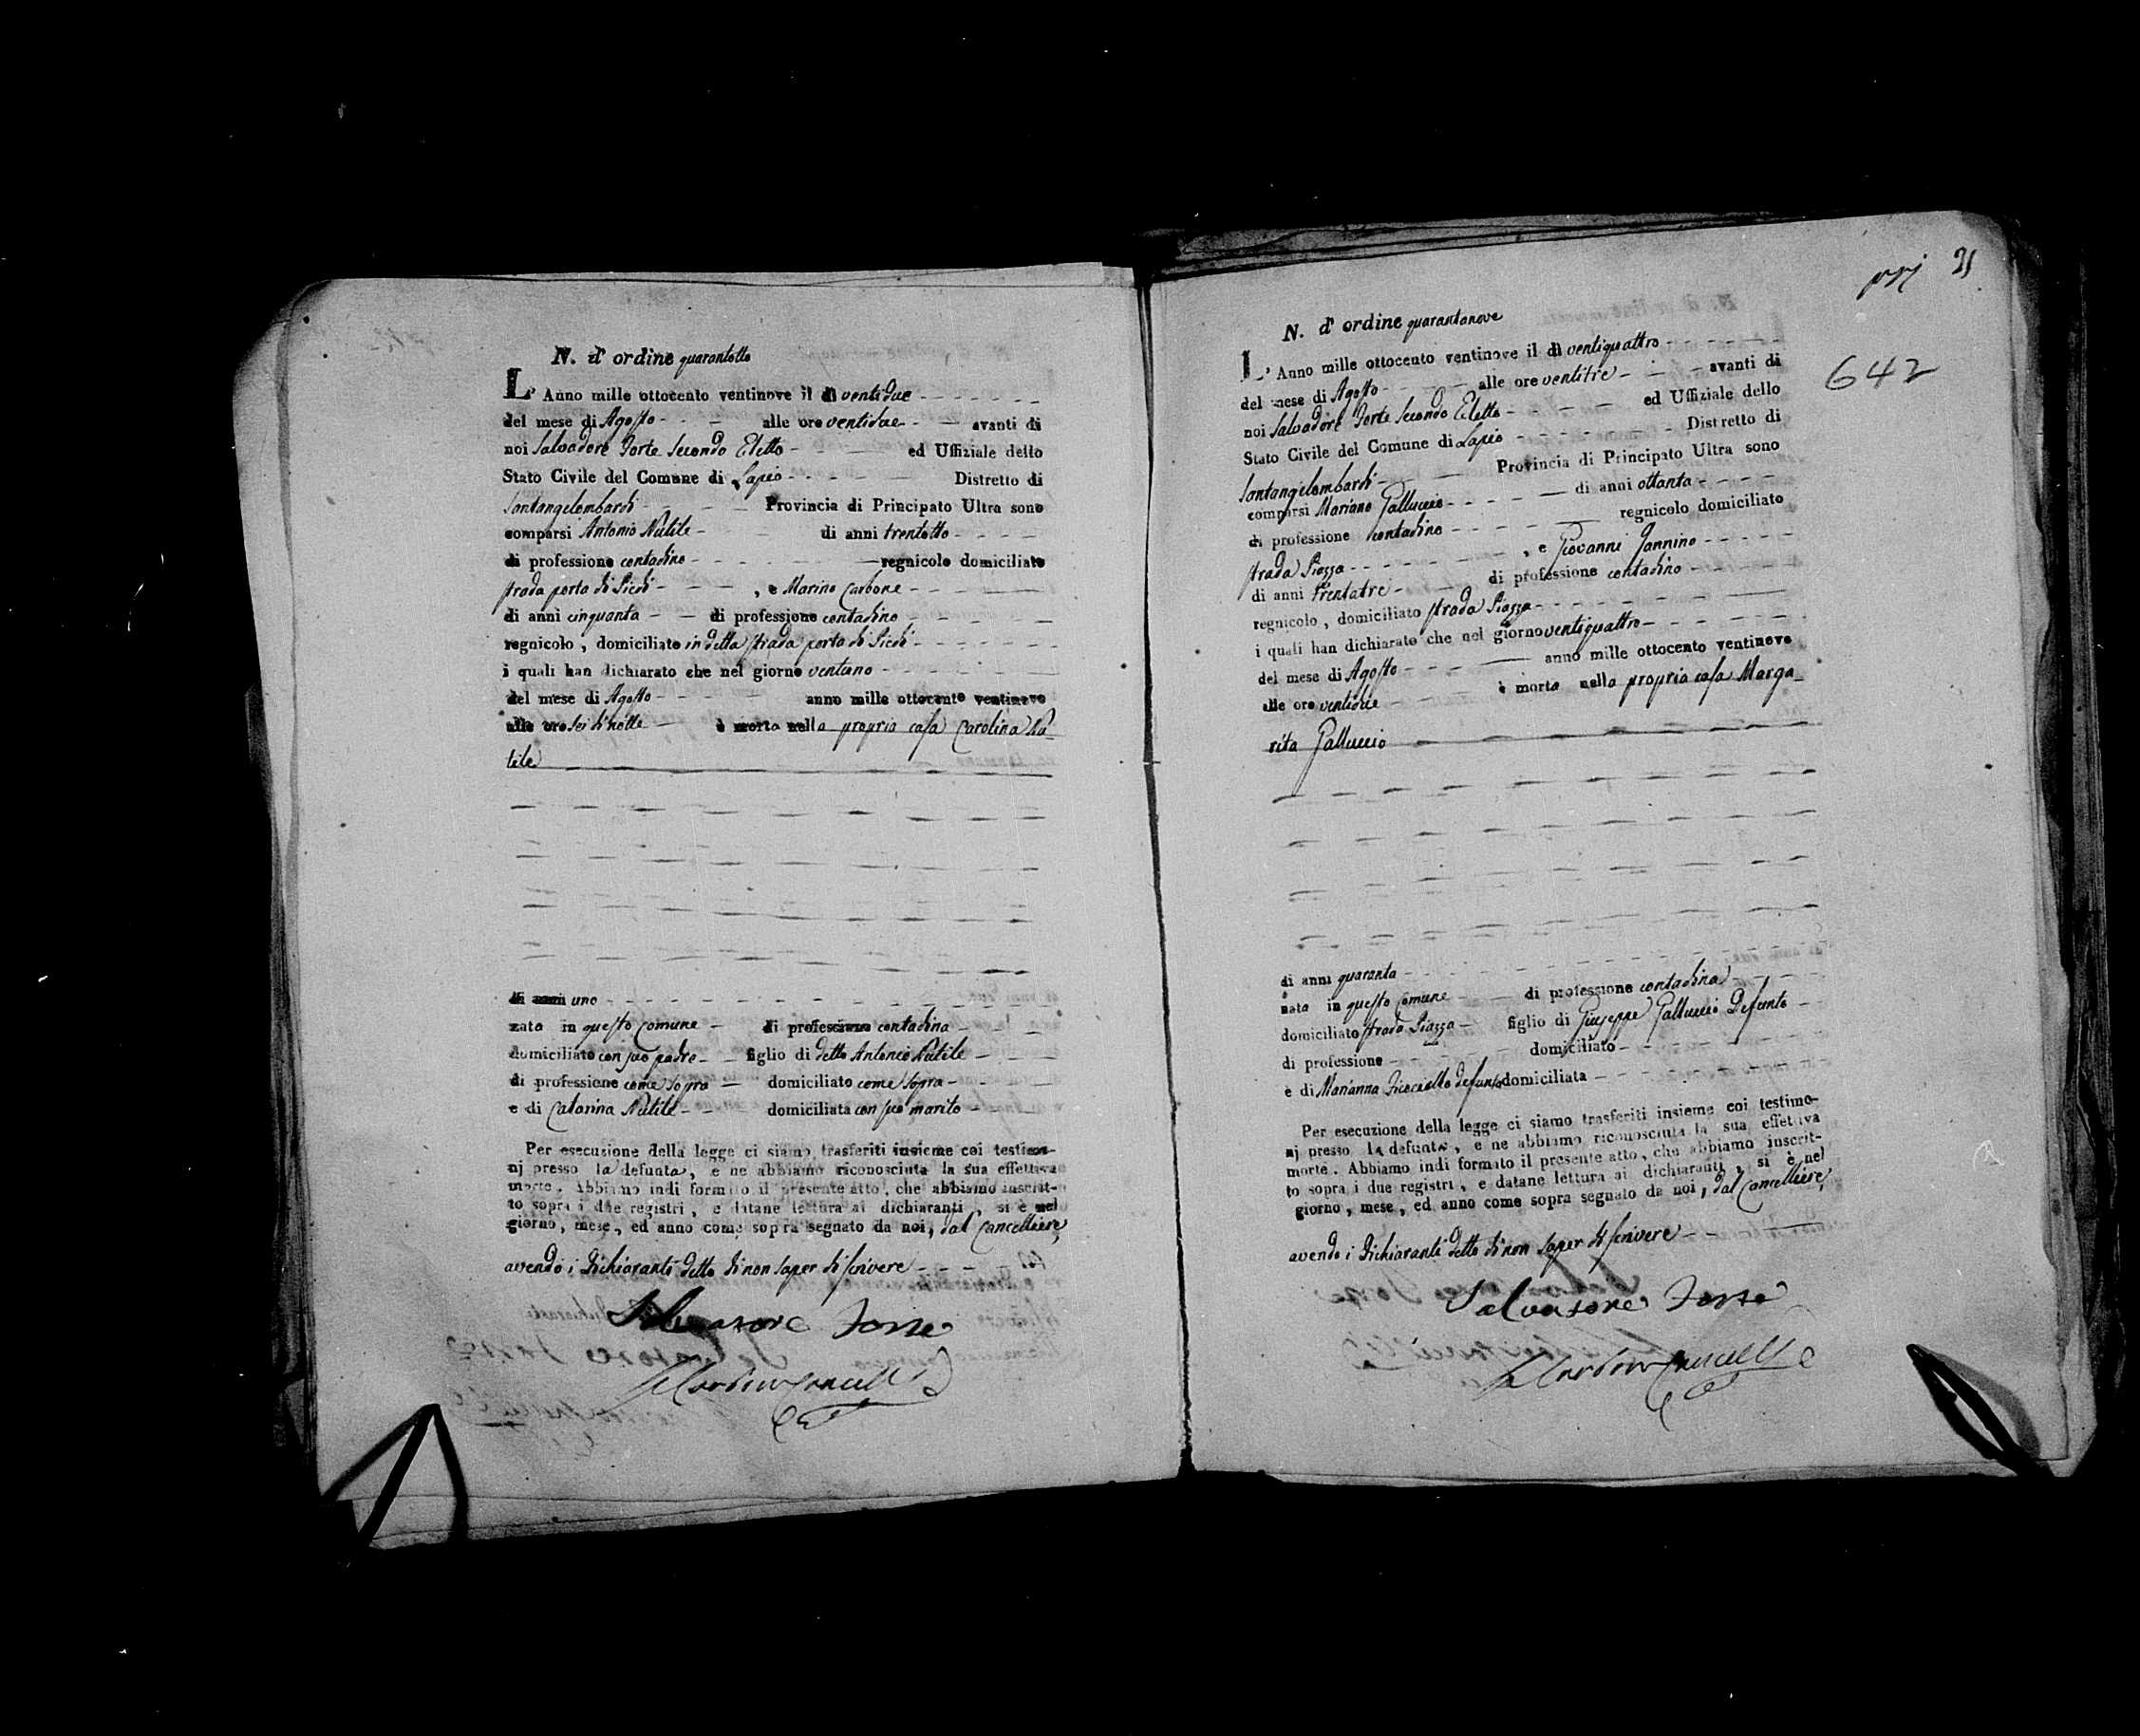 N. d' ordine quarantotto
L' Anno mille ottocento ventinove il dì ventidue
del mese di Agosto alle ore ventidue avanti di
noi Salvadore Forte Secondo Eletto ed Uffiziale dello
Stato Civile del Comune di Lapio Distretto di
Santangelombardi Provincia di Principato Ultra sono
comparsi Antonio Nutile di anni trentotto
di professione contadino regnicolo domiciliato
strada porta di Piedi , e Marino Carbone
di anni cinquanta di professione contadino
regnicolo , domiciliato in detta strada porta di Piedi
i quali han dichiarato che nel giorno ventuno
del mese di Agosto anno mille ottocento ventinove
alle ore sei di notte è morta nella propria casa Carolina Nu-
tile
di anni uno
nata in questo Comune di professione contadina
domiciliato con suo padre figlio di detto Antonio Nutile
di professione come sopra domiciliato come sopra
e di Catarina Nutile domiciliata con suo marito
Per esecuzione della legge ci siamo trasferiti insieme coi testimo-
nj presso la defunta, e ne abbiamo riconosciuta la sua effettiva
morte. Abbiamo indi formato il presente atto, che abbiamo inscrit-
to sopra i due registri, e datane lettura ai dichiaranti, si è nel
giorno, mese, ed anno come sopra segnato da noi, dal Cancelliere,
avendo i Dichiaranti detto di non saper di scrivere
Salvatore Forte
prj 21
642
N. d' ordine quarantanove
L' Anno mille ottocento ventinove il dì ventiquattro
del mese di Agosto alle ore ventitre avanti di
noi Salvadore Forte Secondo Eletto ed Uffiziale dello
Stato Civile del Comune di Lapio Distretto di
Santangelombardi Provincia di Principato Ultra sono
comparsi Mariano Galluccio di anni ottanta
di professione contadino regnicolo domiciliato
strada Piazza , e Giovanni Jannino
di anni trentatre di professione contadino
regnicolo , domiciliato strada Piazza
i quali han dichiarato che nel giorno ventiquattro
del mese di Agosto anno mille ottocento ventinove
alle ore ventidue è morta nella propria casa Marga-
rita Galluccio
di anni quaranta
nata in questo Comune di professione contadina
domiciliato strada Piazza figlio di Giuseppe Galluccio Defunto
di professione domiciliato
e di Marianna defunta domiciliata
Per esecuzione della legge ci siamo trasferiti insieme coi testimo-
nj presso la defunta, e ne abbiamo riconosciuta la sua effettiva
morte. Abbiamo indi formato il presente atto, che abbiamo inscrit-
to sopra i due registri, e datane lettura ai dichiaranti, si è nel
giorno, mese, ed anno come sopra segnato da noi, dal Cancelliere,
avendo i Dichiaranti detto di non saper di scrivere
Salvatore Forte